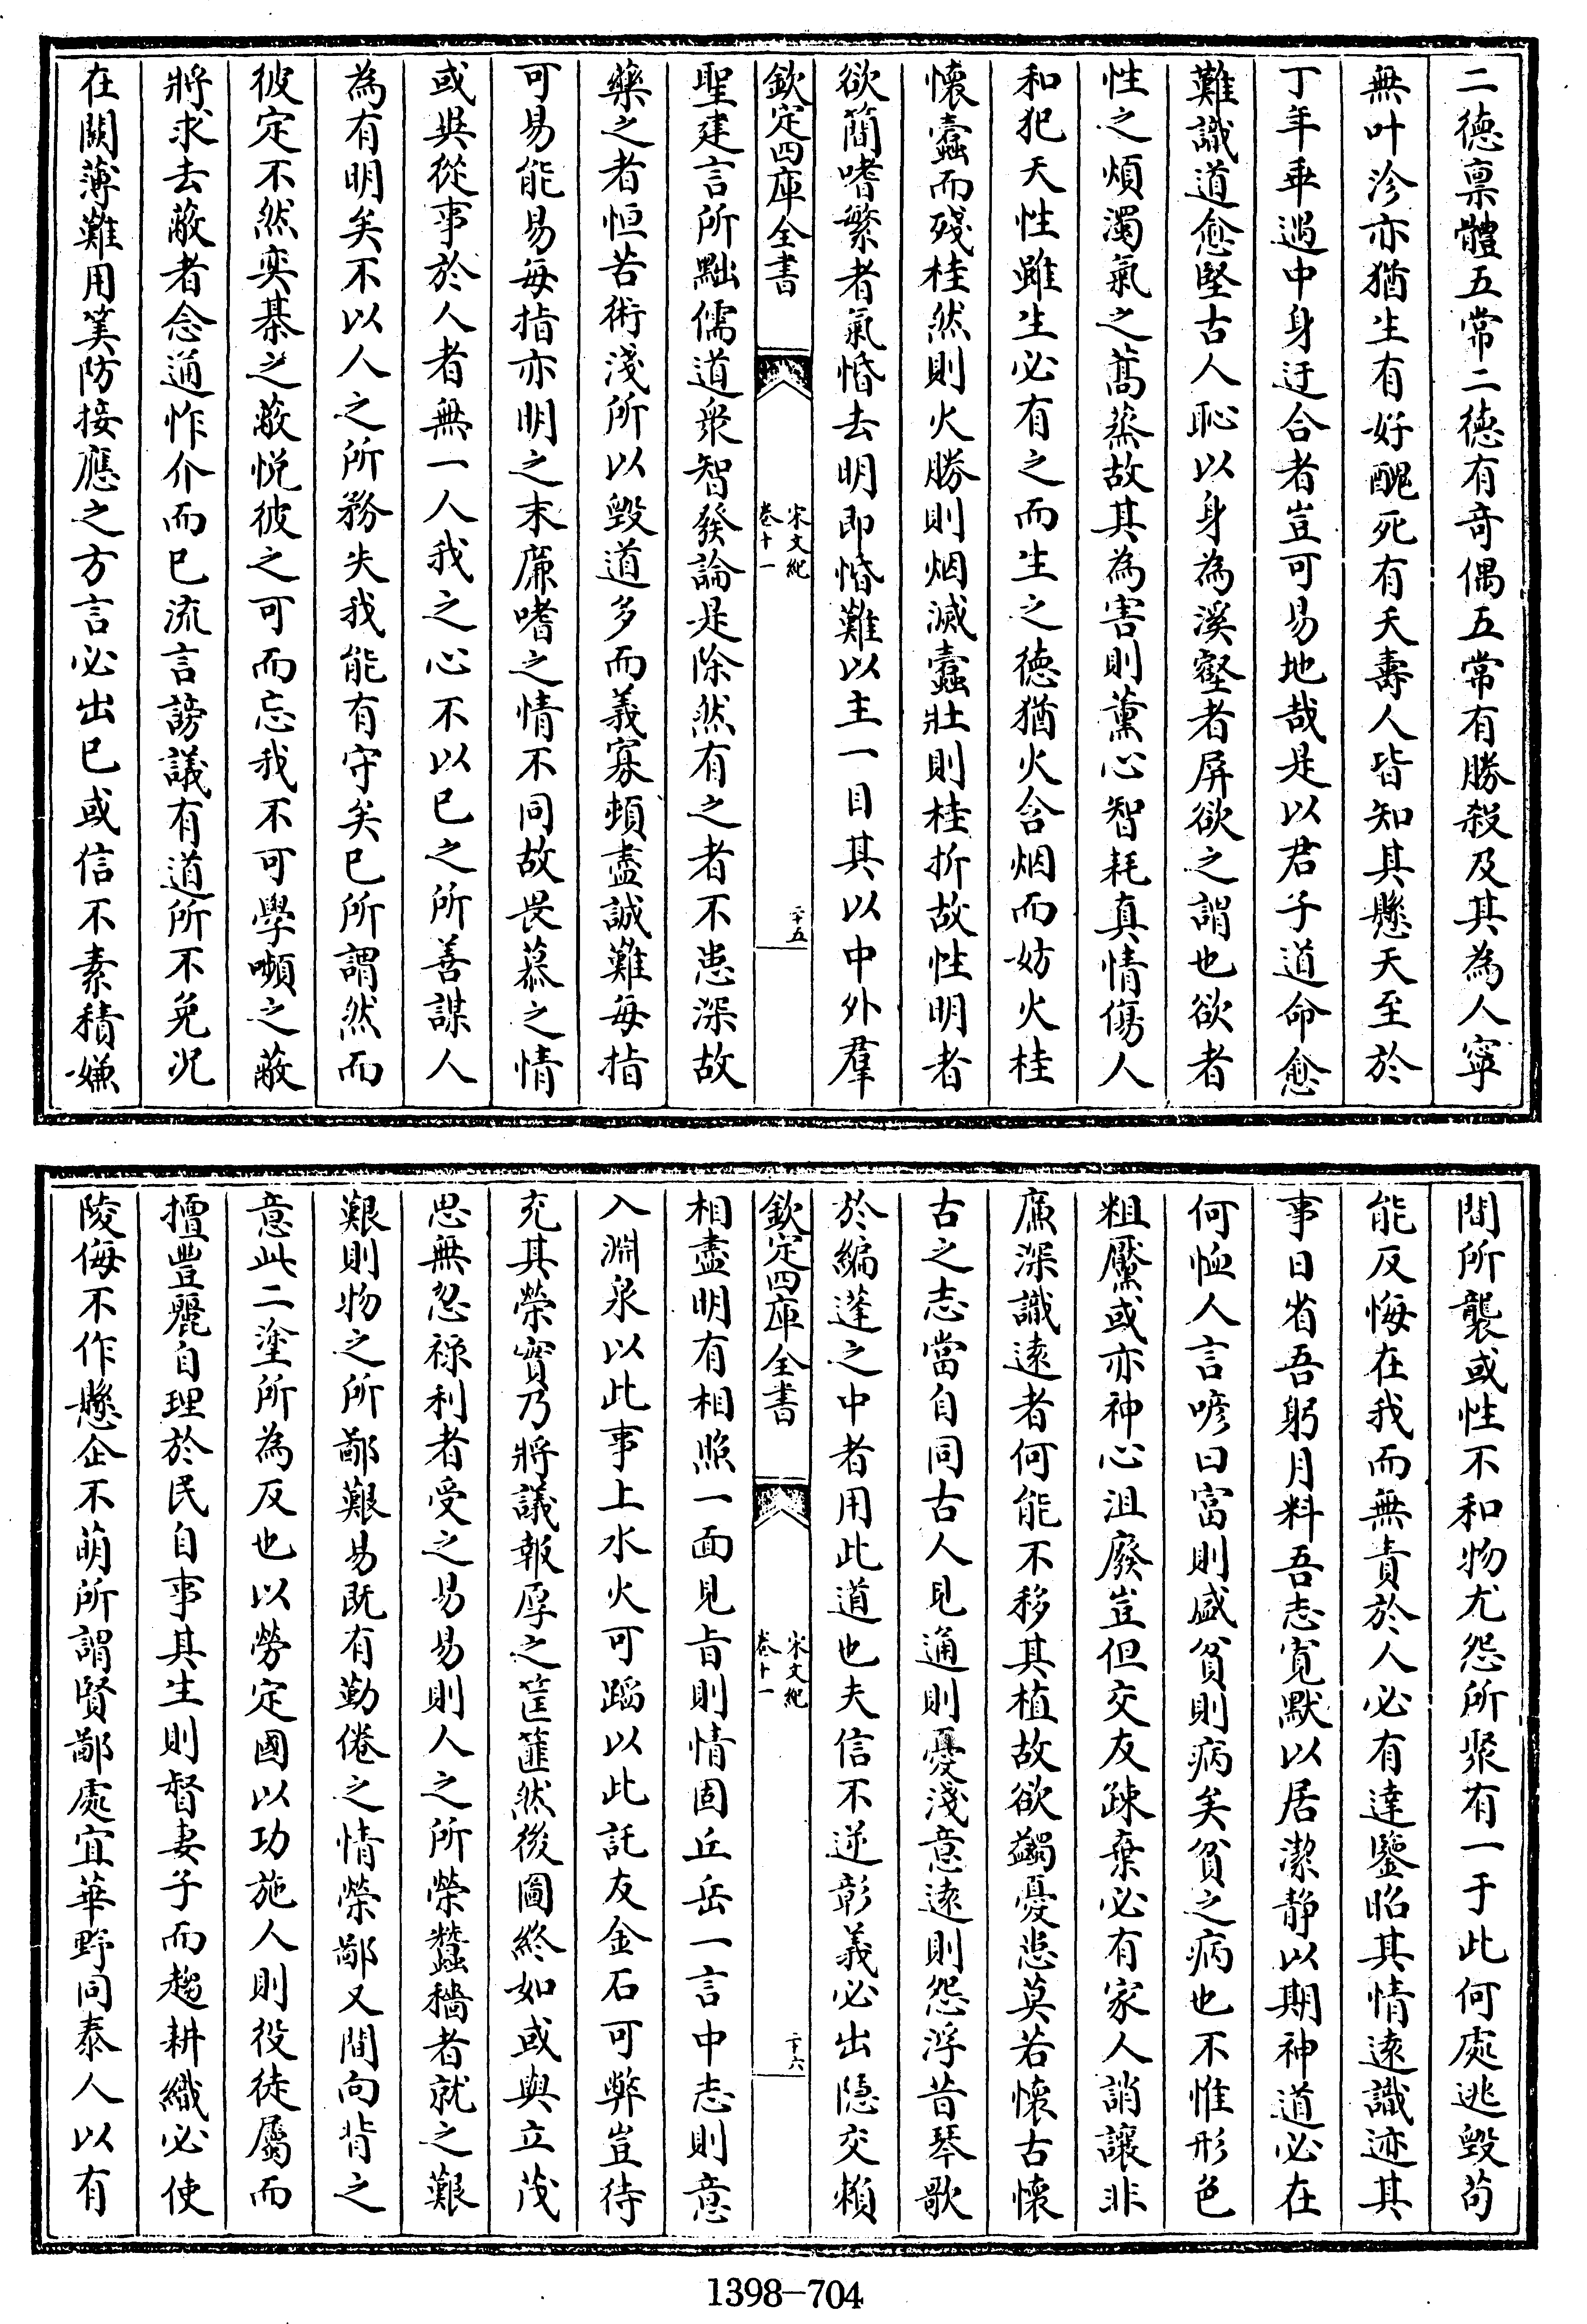 二德稟體五常二德有奇偶五常有勝殺及其為人寧
無叶沴亦猶生有好醜死有夭壽人皆知其懸天至於
丁年乖遇中身迂合者豈可易地哉是以君子道命愈
難識道愈堅古人恥以身為溪壑者屏欲之謂也欲者
性之煩濁氣之蒿蒸故其為害則薰心智耗真情傷人
和犯天性雖生必有之而生之德猶火含烟而妨火桂
懷蠧而殘桂然則火勝則烟滅蠧壯則桂折故性明者
欲簡嗜繁者氣惛去明即惛難以主一目其以中外羣
欽定四庫全書
宋文紀
卷十一
二十五
聖建言所黜儒道衆智發論是除然有之者不患深故
藥之者恒苦術淺所以毀道多而義寡頓盡誠難每指
可易能易每指亦明之末廉嗜之情不同故畏慕之情
或與從事於人者無一人我之心不以已之所善謀人
為有明矣不以人之所務失我能有守矣已所謂然而
彼定不然奕棊之蔽悅彼之可而忘我不可學嚬之蔽
將求去蔽者念通怍介而已流言謗議有道所不免况
在闕薄難用筭防接應之方言必出已或信不素積嫌
間所襲或性不和物尤怨所聚有一于此何處逃毀苟
能反悔在我而無責於人必有達鑒昭其情遠識迹其
事日省吾躬月料吾志寛默以居潔静以期神道必在
何恤人言喭曰富則盛貧則病矣貧之病也不惟形色
粗黶或亦神心沮廢豈但交友疎棄必有家人誚讓非
廉深識遠者何能不移其植故欲蠲憂患莫若懷古懷
古之志當自同古人見通則憂淺意遠則怨浮昔琴歌
於編蓬之中者用此道也夫信不逆彰義必出隱交賴
欽定四庫全書
宋文紀
卷十一
二十六
相盡明有相照一面見旨則情固丘岳一言中志則意
入淵泉以此事上水火可蹈以此託友金石可弊豈待
充其榮實乃將議報厚之筐篚然後圖終如或與立茂
思無忽祿利者受之易易則人之所榮蠶穡者就之艱
艱則物之所鄙艱易既有勤倦之情榮鄙又間向背之
意此二塗所為反也以勞定國以功施人則役徒屬而
擅豐麗自理於民自事其生則督妻子而趨耕織必使
陵侮不作懸企不萌所謂賢鄙處宜華野同泰人以有
1398—704